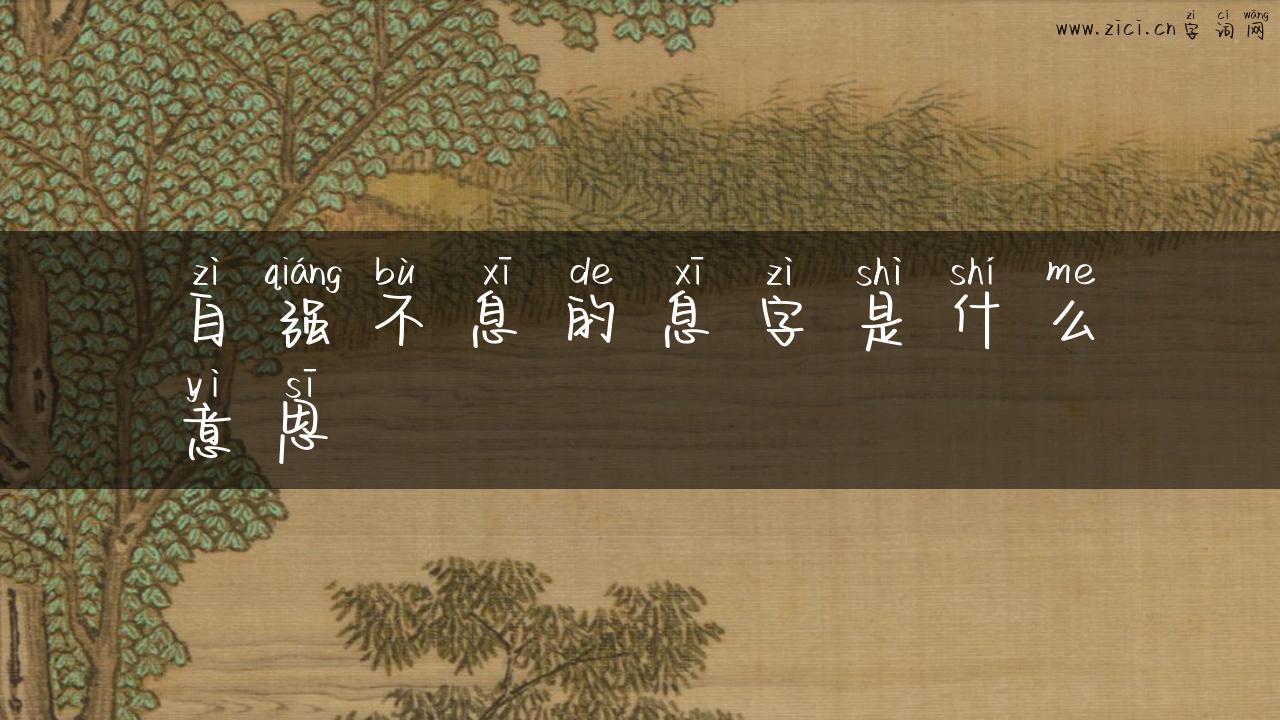 zì cí wǎng
www.zici.cn字词网
zì qiáng bù xī de xī zì shì shí me
自强不息的息字是什么
yì sī
意思